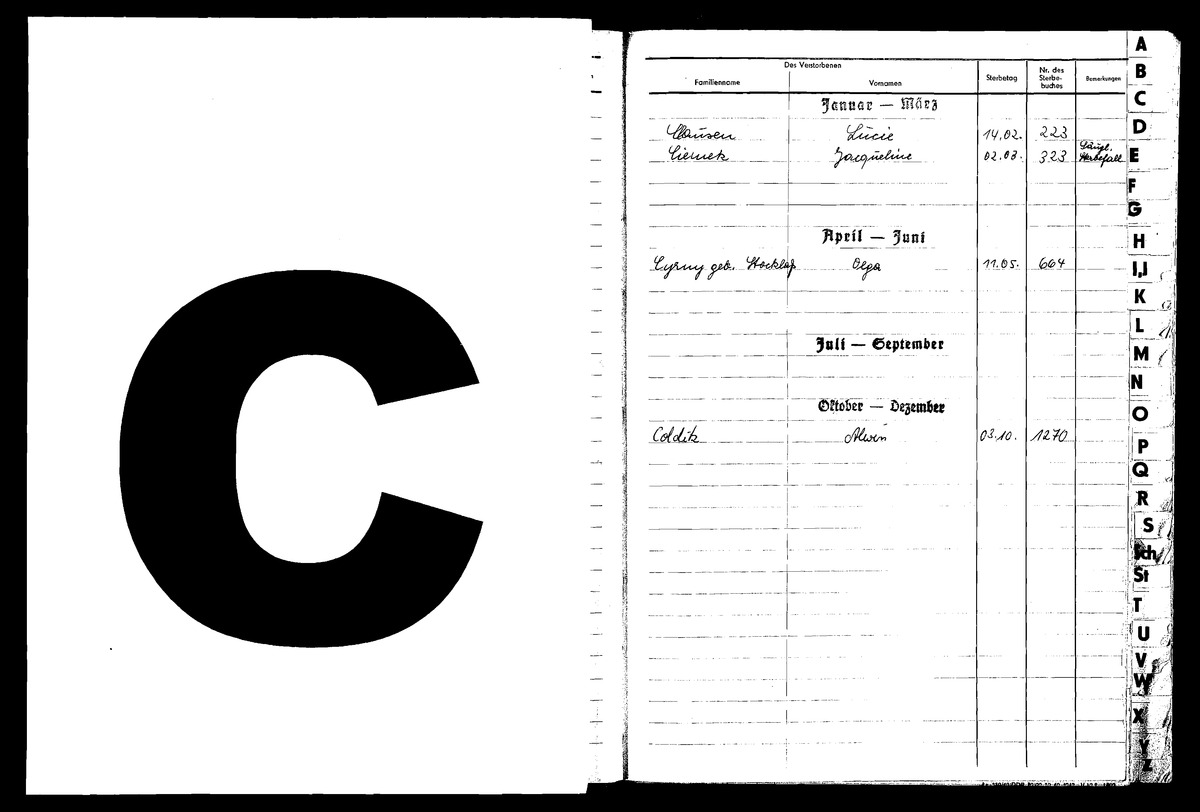 C
Des Verstorbenen
Familienname Vornamen Sterbetag Nr. des Sterbe-buches Bemerkungen
Januar — März
Clausen Lucie 14.02. 223
Ciemek Jacqueline 02.03. 323 Säugl. Sterbefall
April — Juni
Cyrny geb. Olga 11.05. 664
Juli — September
Oktober — Dezember
Colditz Alwin 03.10. 1270
A
B
C
D
E
F
G
H
I,J
K
L
M
N
O
P
Q
R
S
Sch
St
T
U
V
W
X
Y
Z